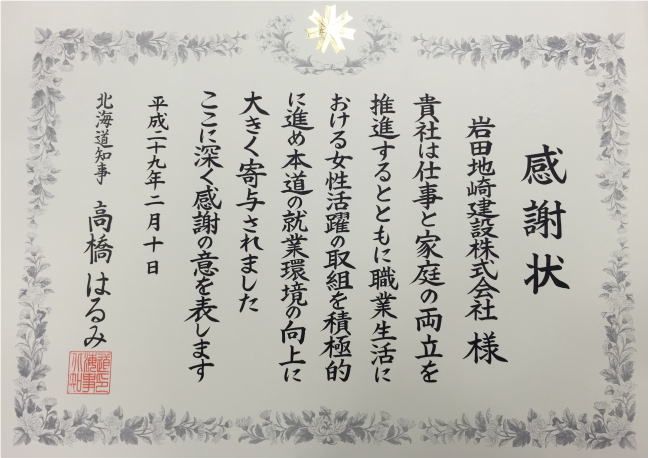 感謝状
岩田地崎建設株式会社 様
貴社は仕事と家庭の両立を
推進するとともに職業生活に
おける女性活躍の取組を積極的
に進め本道の就業環境の向上に
大きく寄与されました
ここに深く感謝の意を表します
平成二十九年二月十日
北海道知事 高橋はるみ